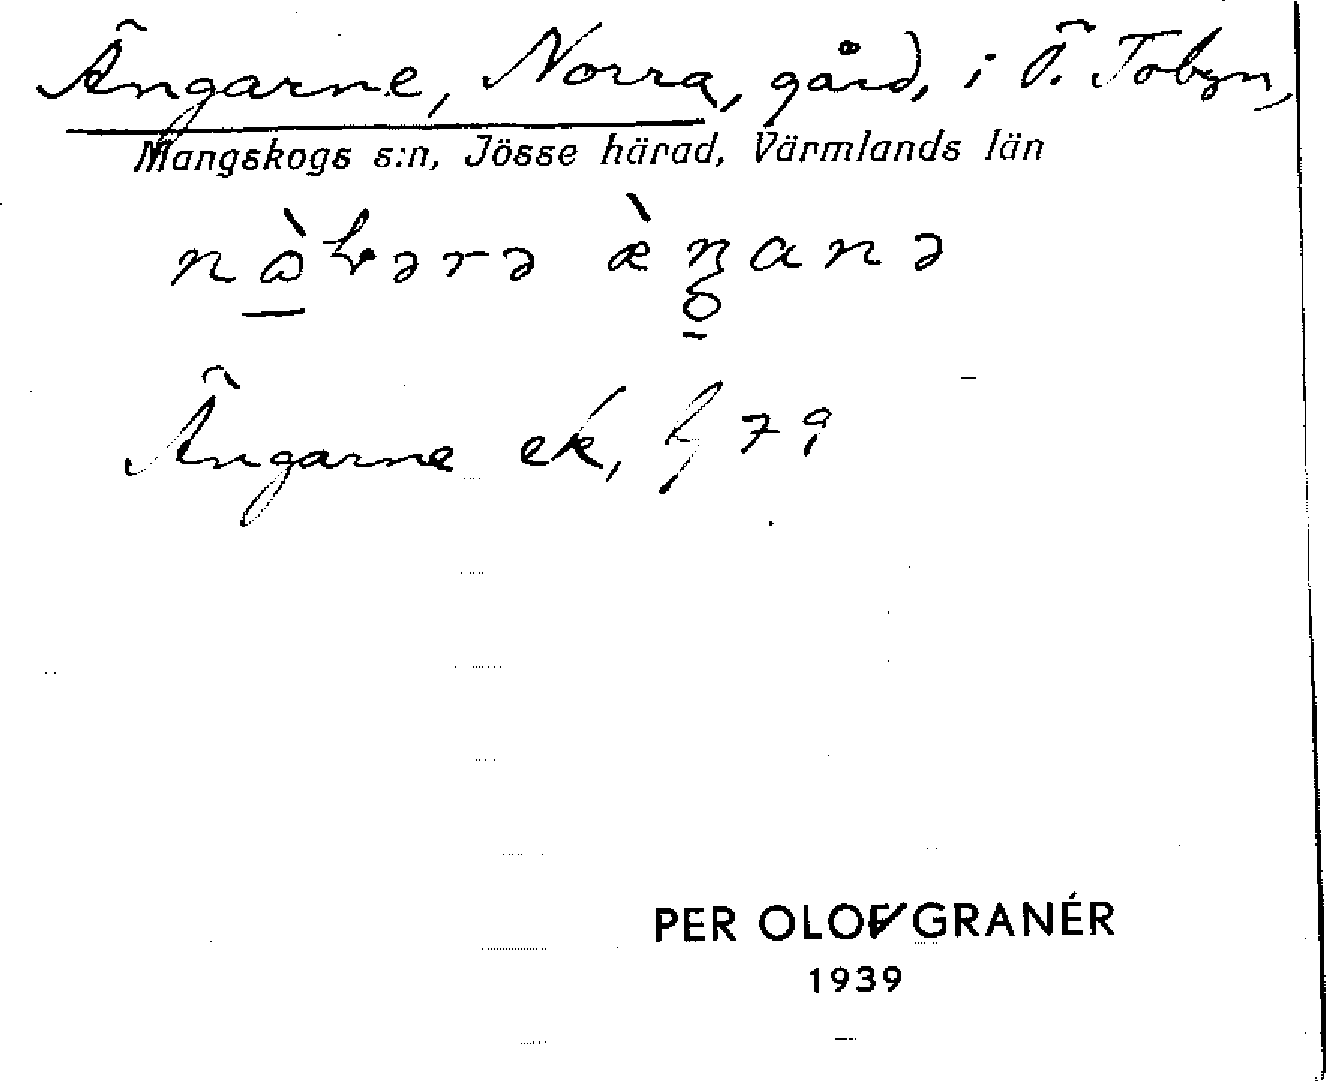 Ängarne, Norra, gård, i Ö. Tobyn,
Mangskogs s:n, Jösse härad, Värmlands län
Ängarne ek,
PER OLOF GRANÉR
1939